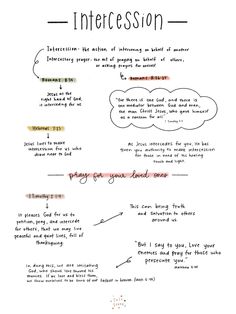 Intercession
Intercession: the action of intervening on behalf of another
Intercessory prayer: the act of praying on behalf of others,
or asking prayers for oneself
Romans 8:34
Romans 8:26-27
Jesus at the
right hand of God
is interceding for us
"For there is one God, and there is
one mediator between God and men,
the man Christ Jesus, who gave himself
as a ransom for all"
1 Timothy 2:5
Hebrews 7:25
Jesus lives to make
intercession for us who
draw near to God
As Jesus intercedes for you, He has
given you authority to make intercession
for those in need of his healing
touch and light.
pray for your loved ones
1 Timothy 2:1-4
it pleases God for us to
petition, pray, and intercede
for others, that we may live
peaceful and quiet lives, full of
thanksgiving.
This can bring truth
and salvation to others
around us
In doing this, we are imitating
God, who shows love toward his
enemies. If we love and bless them,
we show ourselves to be sons of our father in heaven
"But I say to you, Love your
enemies and pray for those who
persecute you."
Matthew 5:44